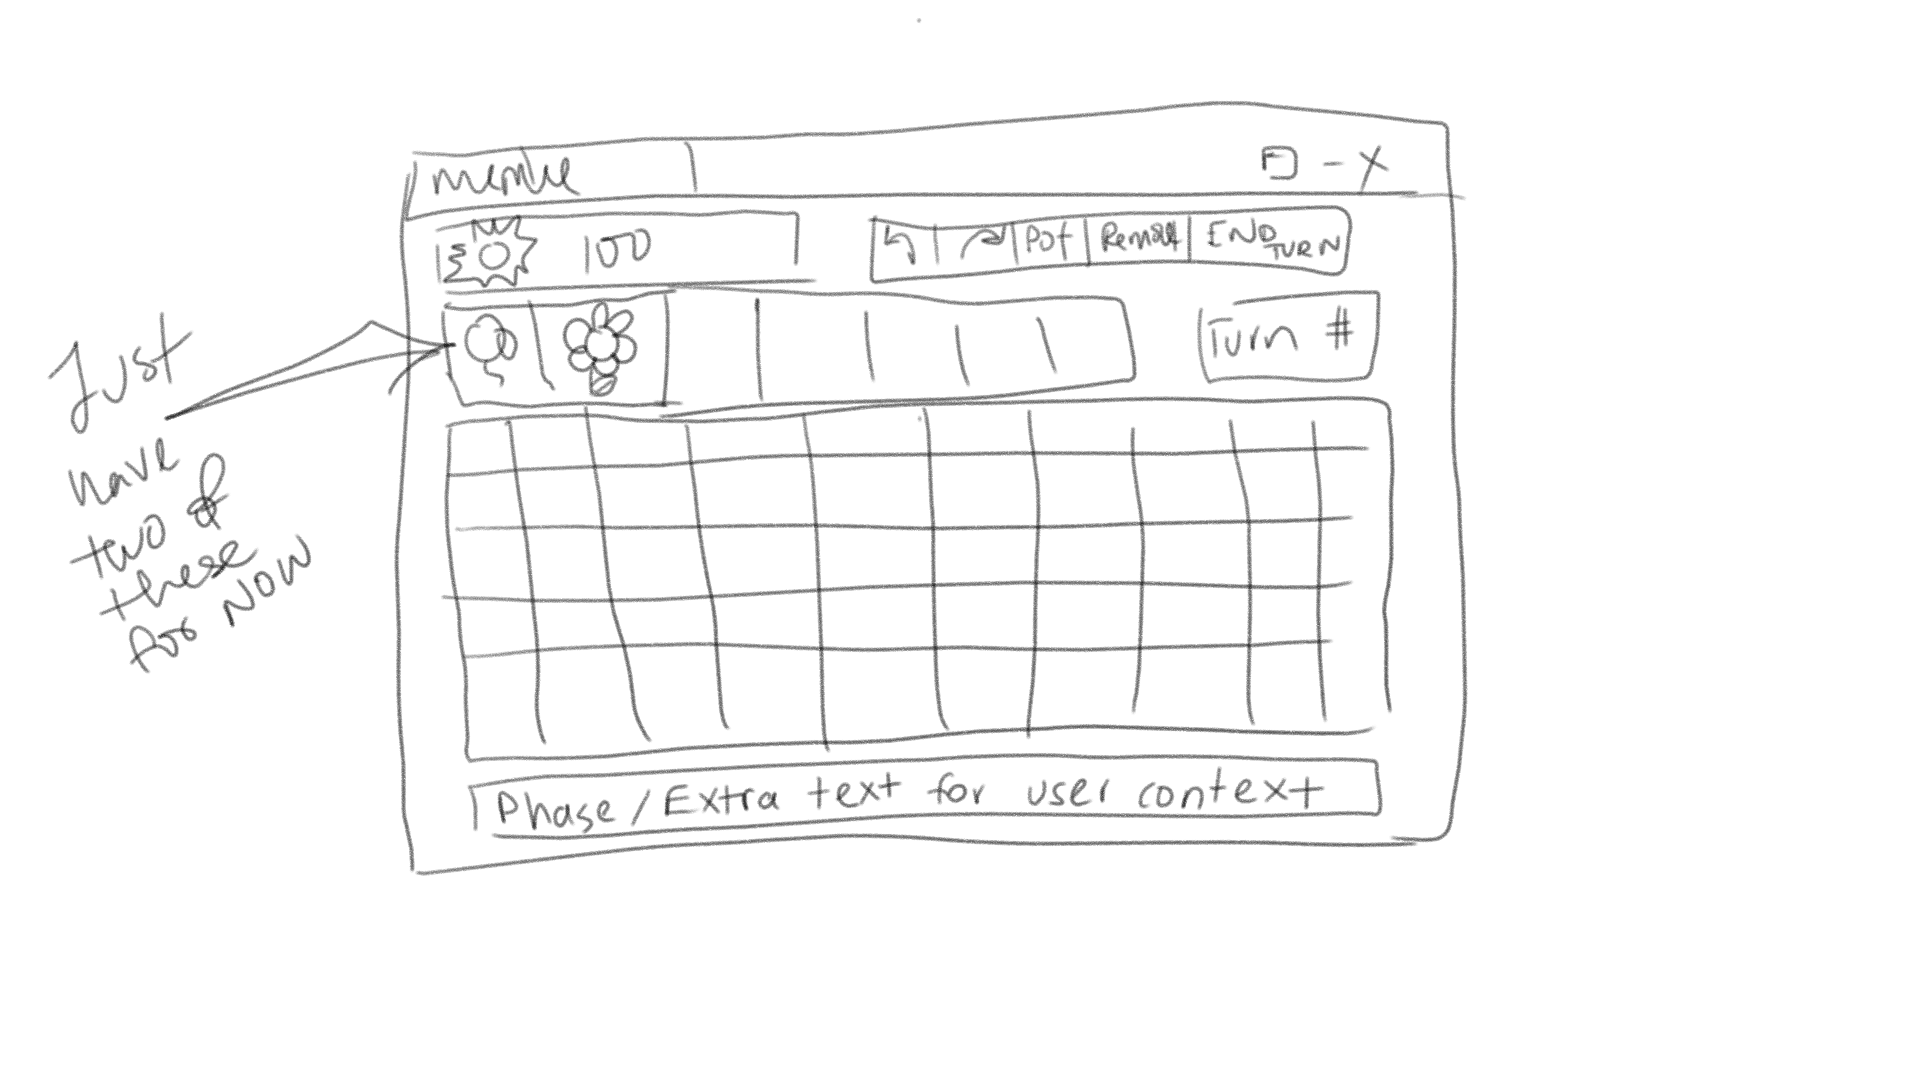 100
Pot
Remove
END TURN
Turn #
Just
have
two of
these
for NOW
Phase / Extra text for user context